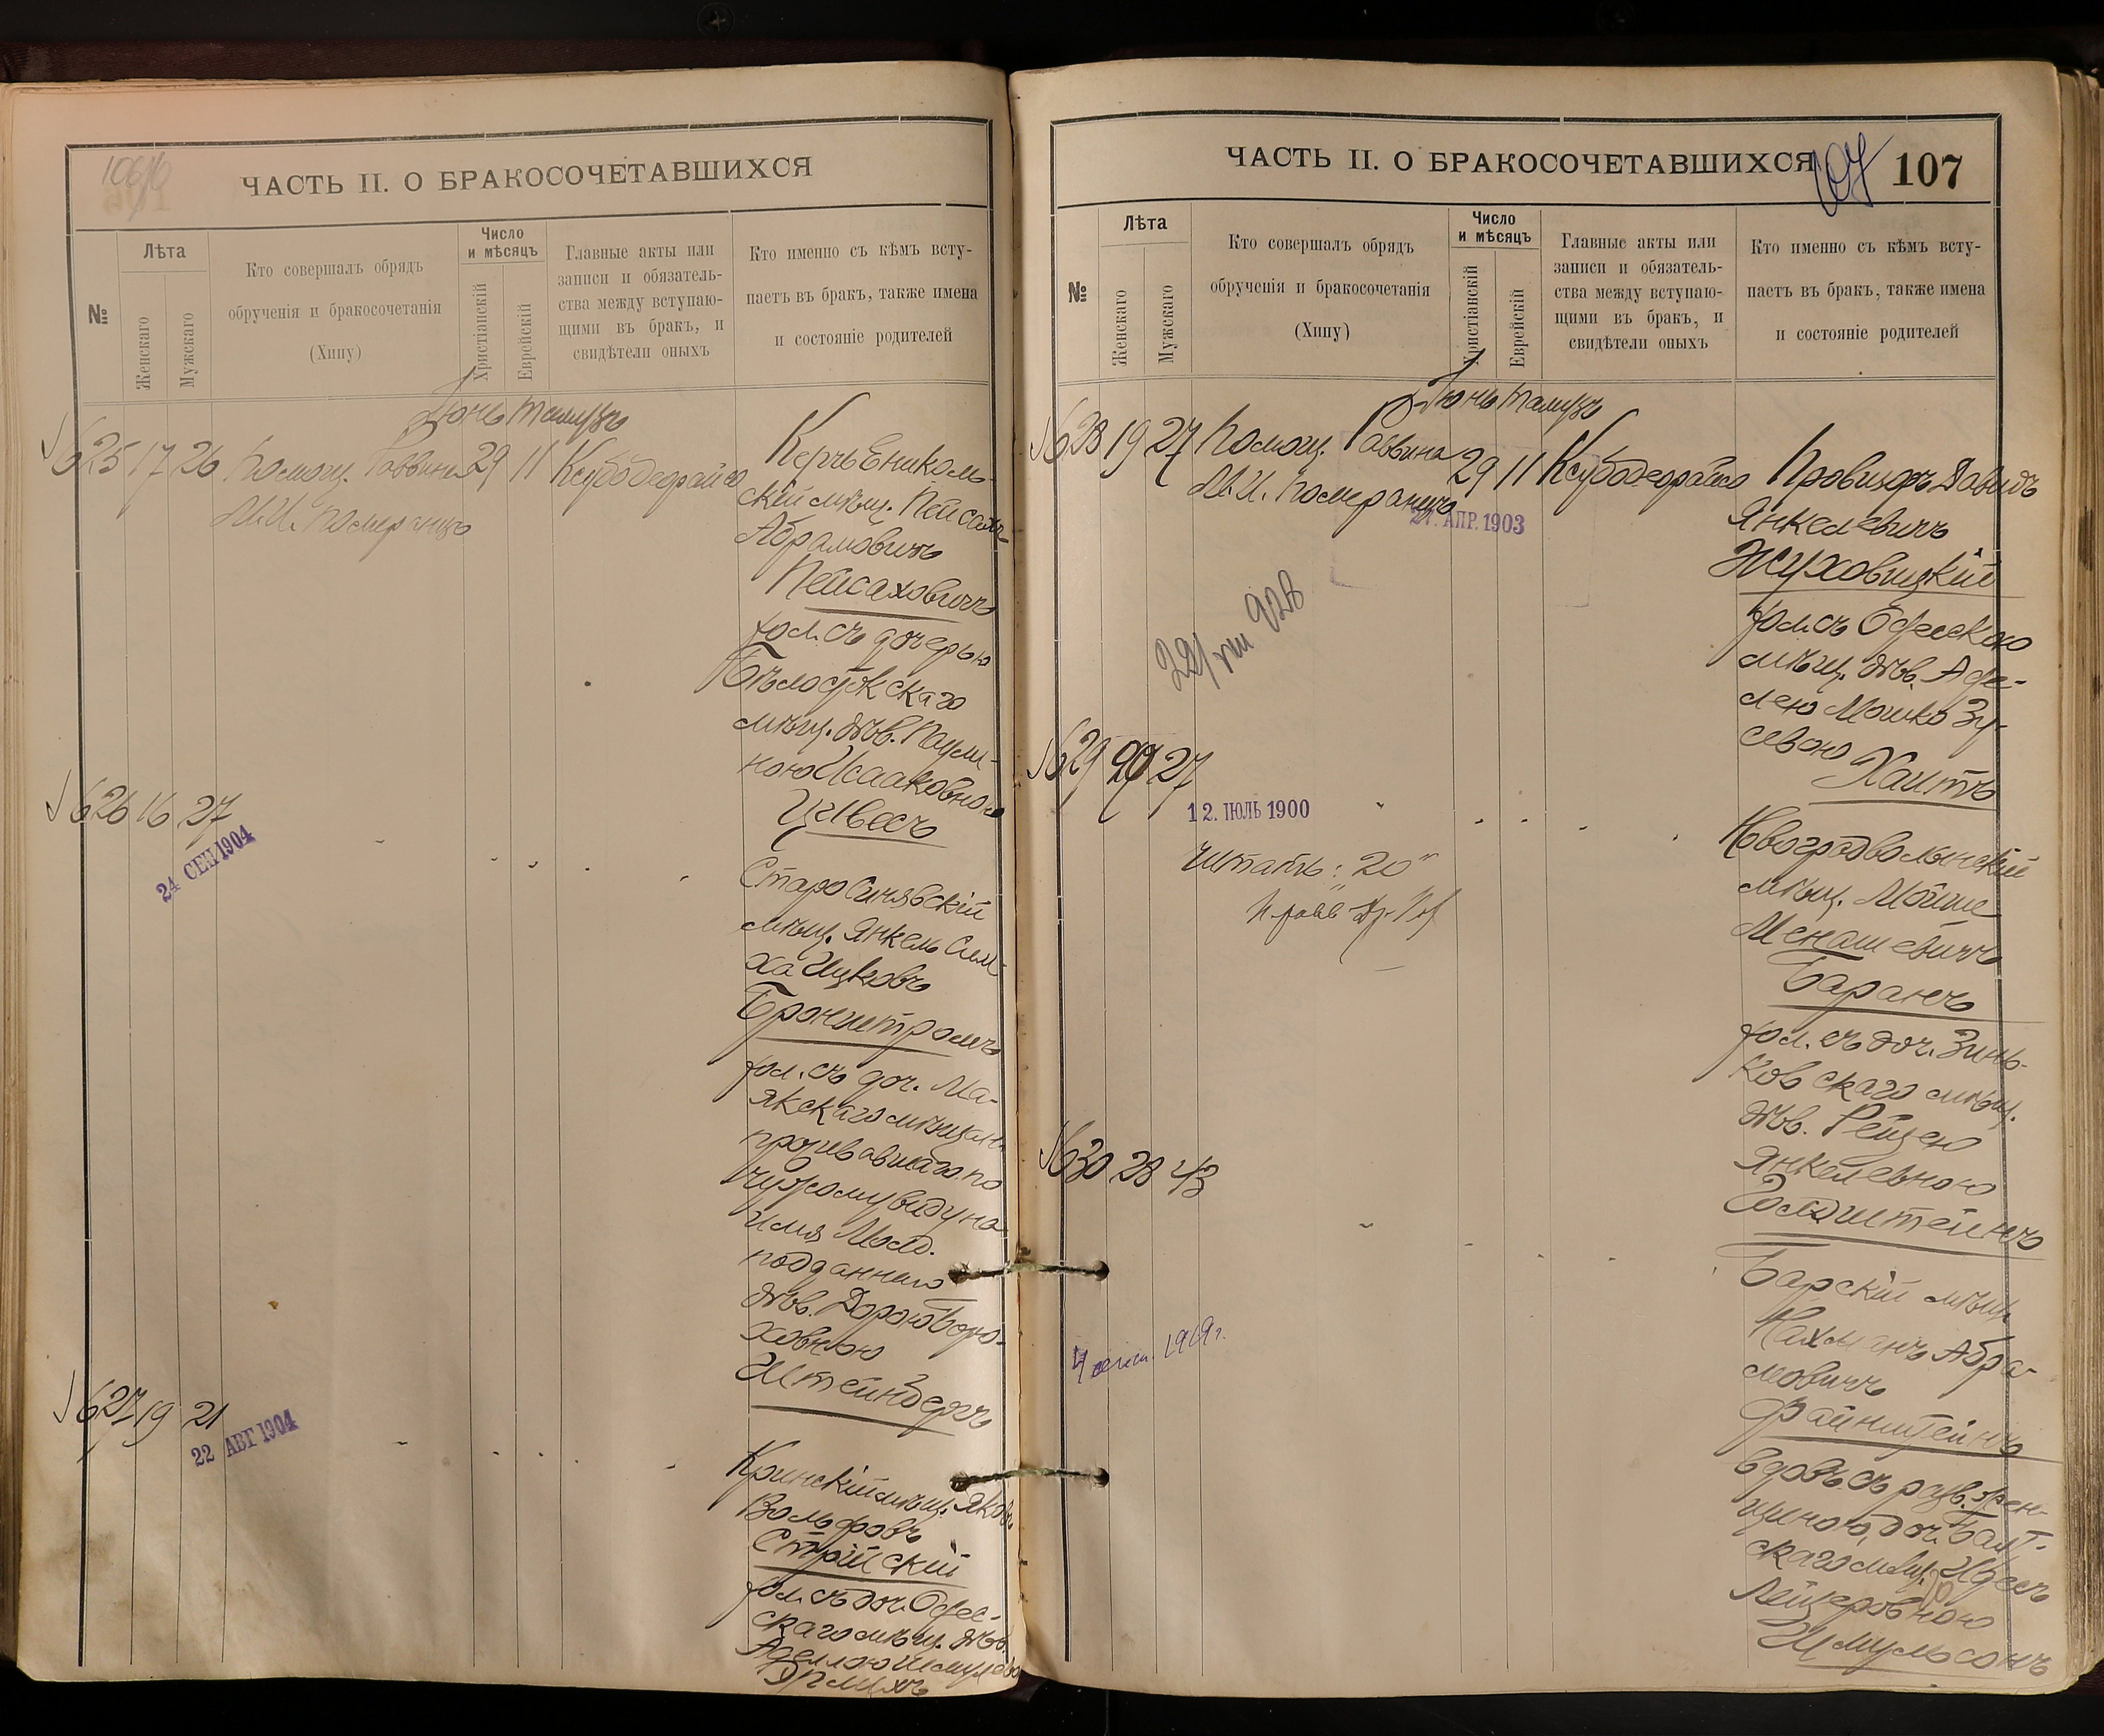 ЧАСТЬ II. О БРАКОСОЧЕТАВШИХСЯ
№
Лѣта
Женскаго
Мужскаго
Кто совершалъ обрядъ
обрученія и бракосочетанія
(Хипу)
Число
и мѣсяцъ
Христіанскій
Еврейскій
Главные акты или
записи и обязатель-
ства между вступаю-
щими въ бракъ, и
свидѣтели оныхъ
Кто именно съ кѣмъ всту-
паетъ въ бракъ, также имена
и состояніе родителей
Іюнь Тамузъ
625 17 26 Помощ. Раввина 29 11
М.И. Померанцъ
Керчь Ениколь-
скій мѣщ. Пейсахъ
Абрамовичъ
Пейсаховичъ
хол. съ дочерью
Бѣлостокскаго
мѣщ. дѣв. Паули-
ною Исааковною
Цивесъ
626 16 27
24 СЕН 1904
Старо Синявскій
мѣщ. Янкель Сим-
ха Ицковъ
Бронштромъ
хол. съ доч. Ма-
якскаго мѣщан.
прожив авшаго по
чужому виду на
имя Молд.
подданнаго
дѣв. Дорою Боро-
ховною
Штейнбергъ
627 19 21
22 АВГ 1904
Кринскій мѣщ. Яковъ
Вольфовъ
Стрійскій
хол. съ доч. Одес-
скаго мѣщ. дѣв.
Аделлою Шмулевою
ЧАСТЬ II. О БРАКОСОЧЕТАВШИХСЯ
107 107
№
Лѣта
Женскаго
Мужскаго
Кто совершалъ обрядъ
обрученія и бракосочетанія
(Хипу)
Число
и мѣсяцъ
Христіанскій
Еврейскій
Главные акты или
записи и обязатель-
ства между вступаю-
щими въ бракъ, и
свидѣтели оныхъ
Кто именно съ кѣмъ всту-
паетъ въ бракъ, также имена
и состояніе родителей
Іюнь Тамузъ
628 19 27 Помощ. Раввина 29 11
М.И. Померанцъ
27. АПР. 1903
Провизоръ Давидъ
Янкелевичъ
Жуховицкій
хол. съ Одесскою
мѣщ. дѣв. Аде-
лею Мошко Зу-
севою
Хаитъ
29/VIII 928
629 27
12. ІЮЛЬ 1900
Читать: "20"
Новоградволынскій
мѣщ. Мойше
Менашевичъ
Баранъ
хол. съ доч. Зинь-
ковскаго мѣщ.
дѣв. Рейзею
Янкелевною
Голдштейнъ
630 28 43
1919 г.
Барскій мѣщ.
Нахманъ Абра-
мовичъ
Файнштейнъ
вдовъ съ разв. жен-
щиною, доч. Балт-
скаго мѣщ.
Лейзеровною
Шмульсонъ